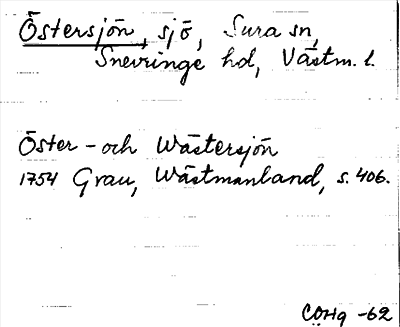 Östersjön, sjö, Sura sn,
Snevringe hd, Västm. l.
Öster- och Wästersjön
1754 Grau, Wästmanland, s. 406.
COHg -62